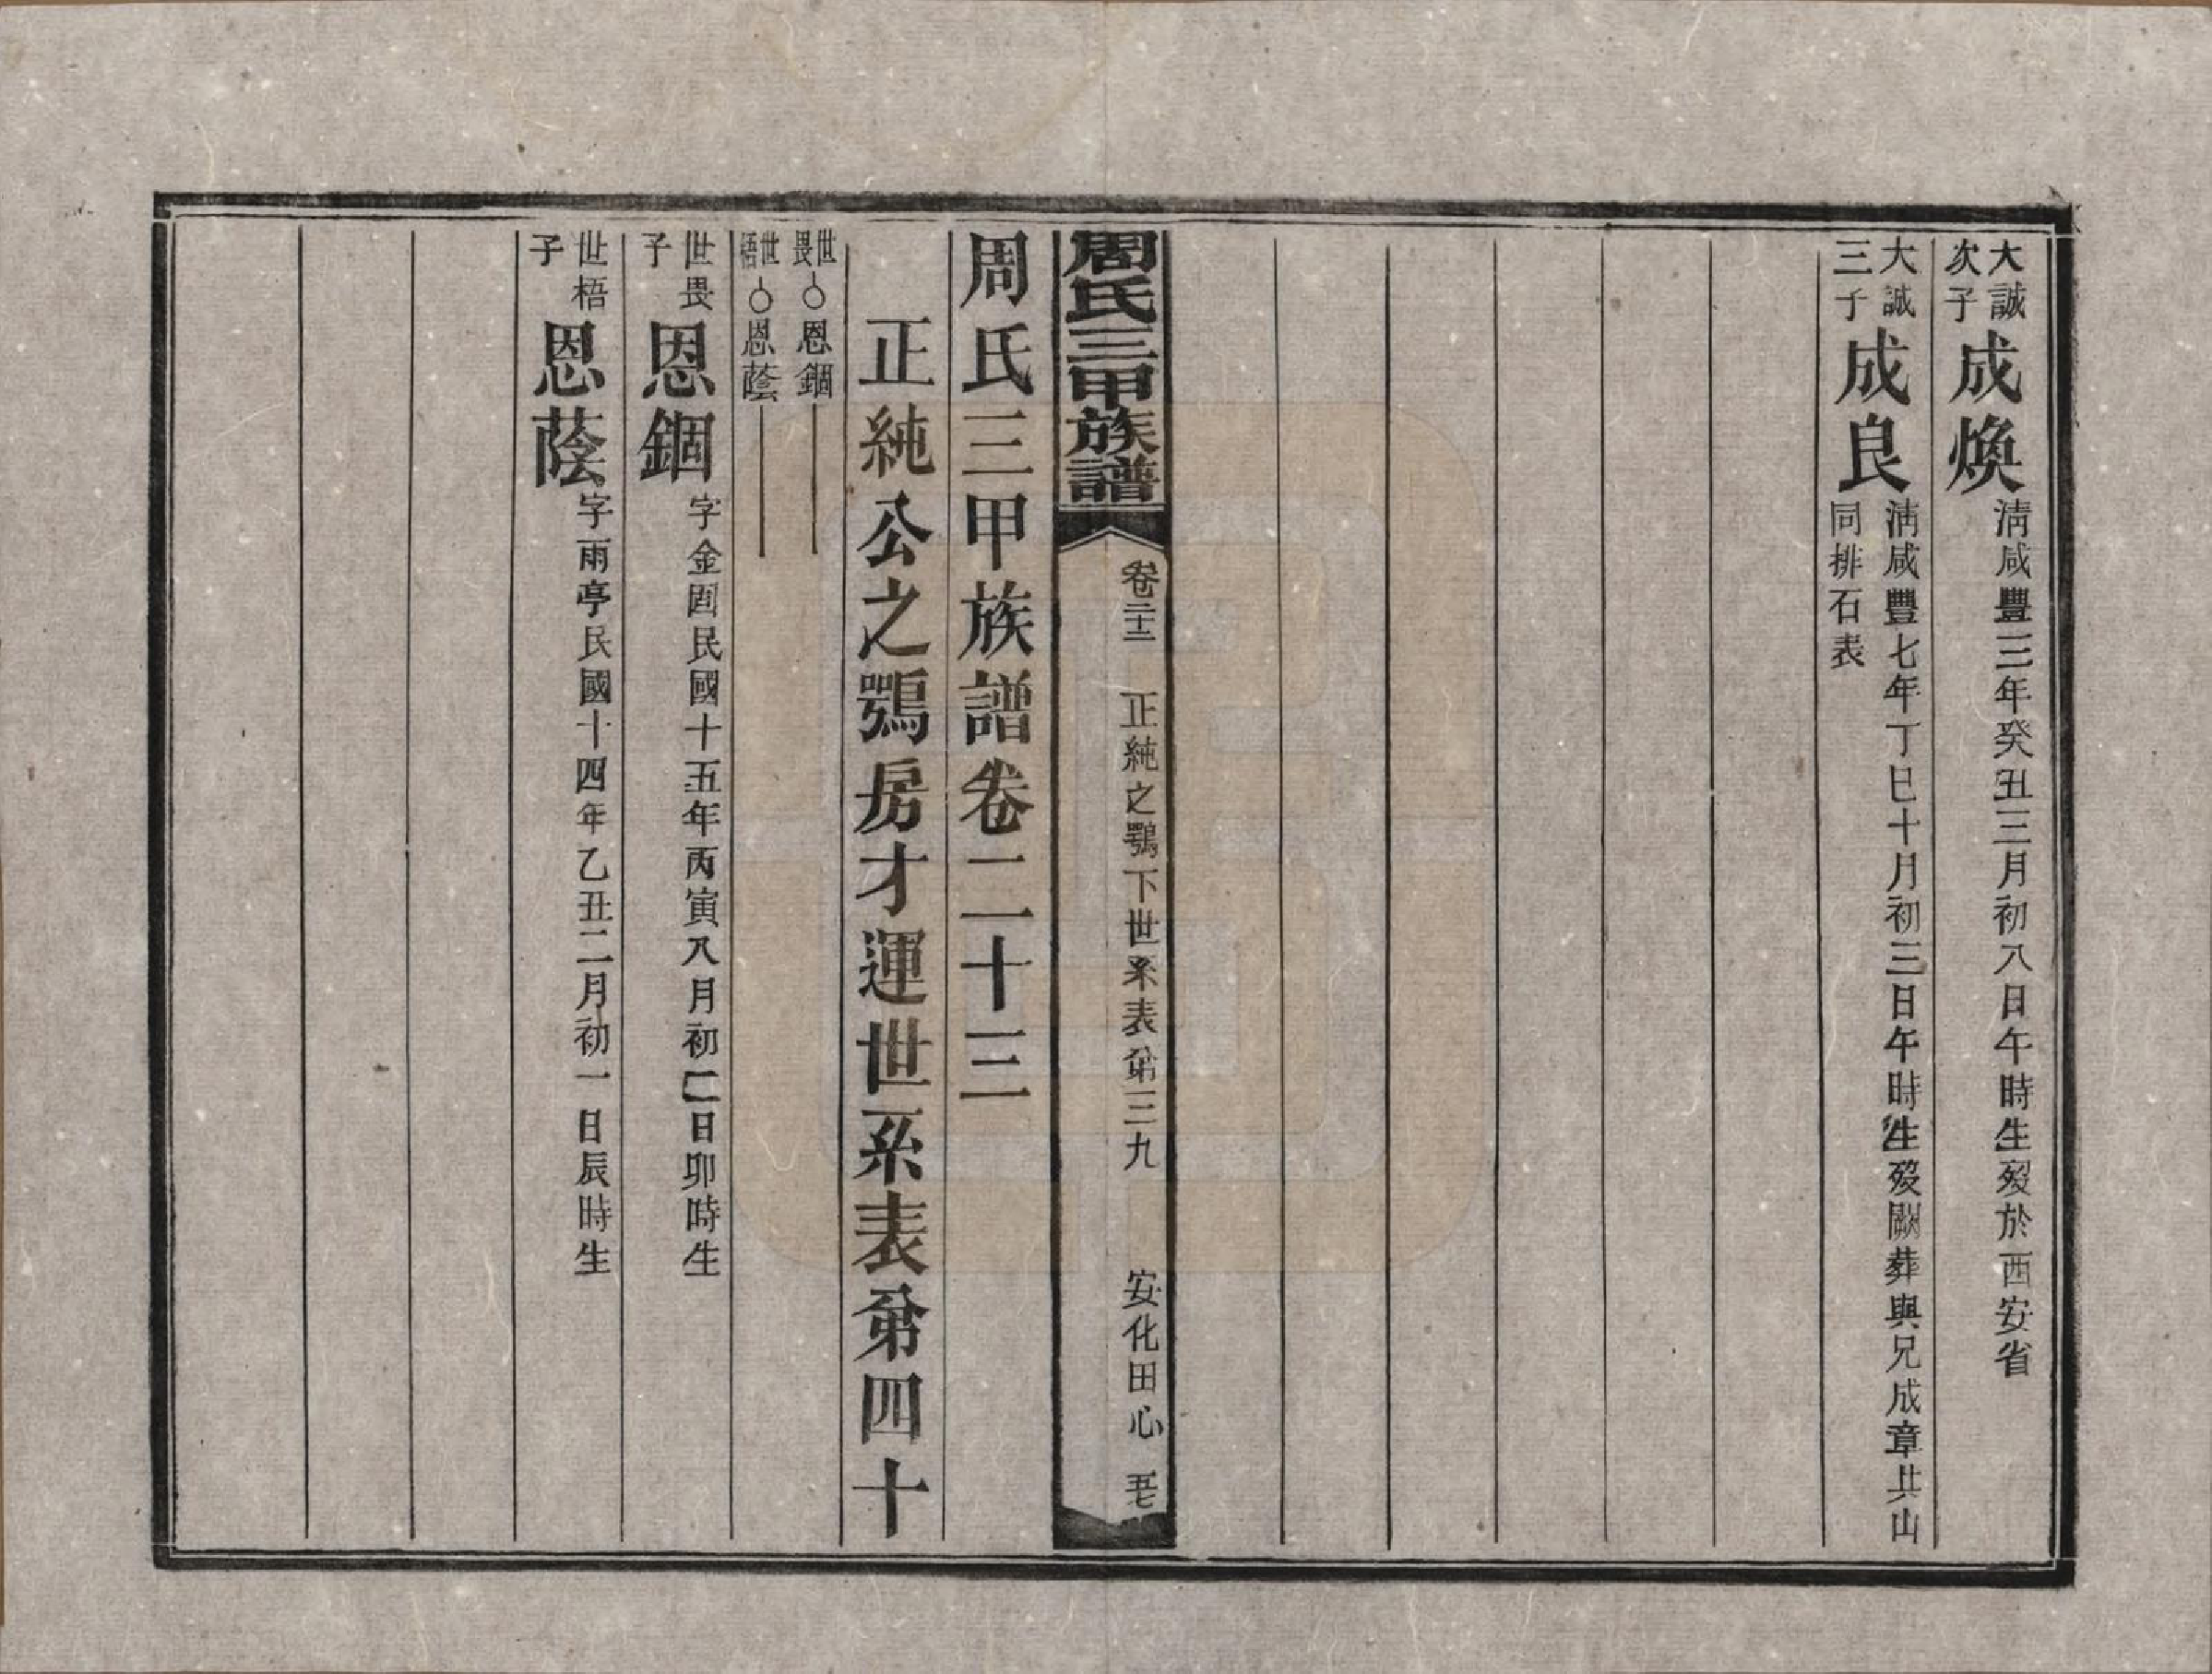 大誠次子 成煥 淸咸豐三年癸丑三月初八日午時生歿於西安省
大誠三子 成良 淸咸豐七年丁巳十月初三日午時生歿闕葬與兄成章共山
同排石表
周氏三甲族譜 卷二十三 正純之鶚下世系表第三九 安化田心
周氏三甲族譜卷二十三
正純公之鶚房才運世系表第四十
世畏 恩錮
世梧 恩蔭
世畏子 恩錮 字金固民國十五年丙寅八月初二日卯時生
世梧子 恩蔭 字雨亭民國十四年乙丑二月初一日辰時生